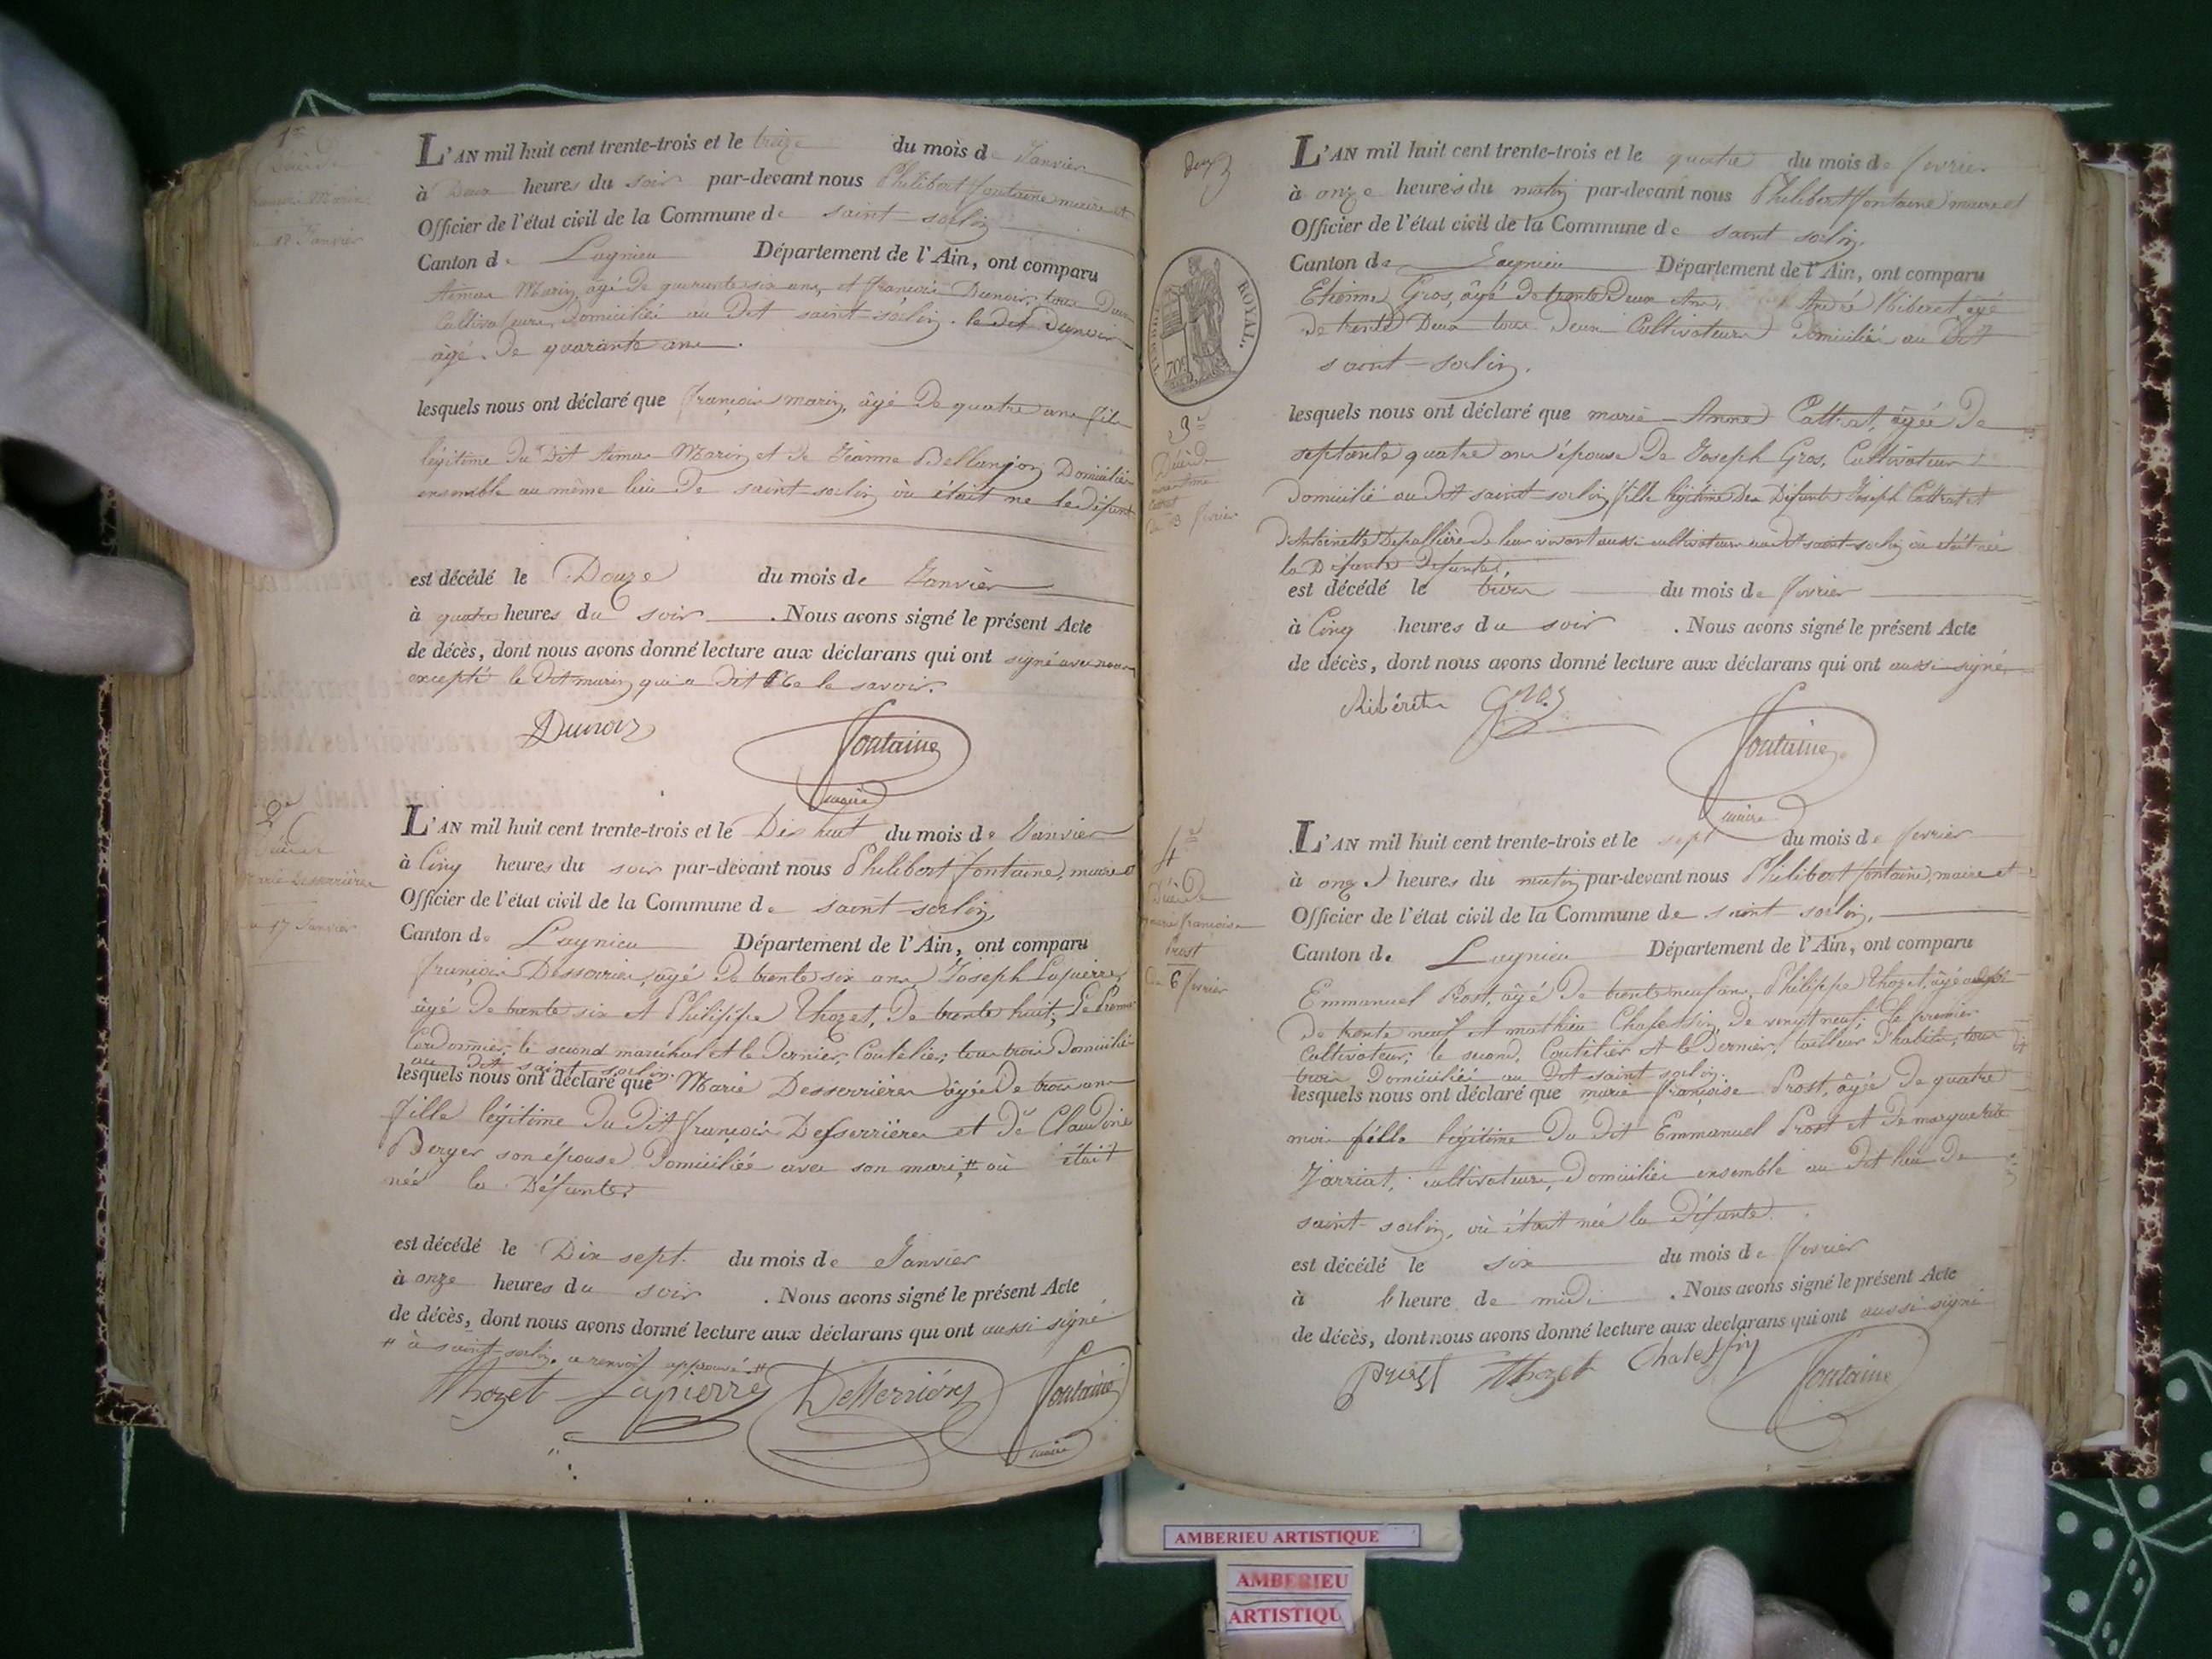 1er
Décès de
François Marin
du 12 Janvier
L'AN mil huit cent trente-trois et le treize du mois de Janvier
à Deux heures du soir par-devant nous Philibert fontaine maire et
Officier de l'état civil de la Commune de saint-sorlin
Canton de Lagnieu Département de l'Ain, ont comparu
Marin, âgé de quarante six ans, et françois Dunoir, tous Deux
Cultivateurs, domiciliés au Dit saint-sorlin. le dit Dunoir
âgé de quarante ans.
lesquels nous ont déclaré que françois marin, âgé De quatre ans fils
légitime Du Dit Marin et de Jeanne Bellanjon Domiciliés
ensemble au même lieu De saint-sorlin où était né le défunt
est décédé le Douze du mois de Janvier
à quatre heures du soir . Nous avons signé le présent Acte
de décès, dont nous avons donné lecture aux déclarans qui ont signé avec nous
excepté le Dit marin qui a dit Ne le savoir.
Dunoir fontaine
maire
2e
Décès de
Marie Desserrières
du 17 Janvier
L'AN mil huit cent trente-trois et le Dix huit du mois de Janvier
à Cinq heures du soir par-devant nous Philibert fontaine, maire et
Officier de l'état civil de la Commune de saint-sorlin
Canton de Lagnieu Département de l'Ain, ont comparu
françois Desserrières, âgé De trente six ans, Joseph Lapierre,
âgé De trente six et Philippe Thozet, De trente huit; Le Premier
Cordonnier; le second maréchal et le Dernier, Coutelier; tous trois Domiciliés
au dit saint sorlin.
lesquels nous ont déclaré que Marie Desserrières âgée De trois ans
fille légitime Du Dit françois Desserrières et De Claudine
Berger son épouse Domiciliée avec son mari # où était
née la Défunte
est décédé le Dix sept. du mois de Janvier
à onze heures du soir . Nous avons signé le présent Acte
de décès, dont nous avons donné lecture aux déclarans qui ont aussi signé
# à saint-sorlin. ce renvoi approuvé #
Thozet Lapierre Desserrières fontaine
maire
deux
TIMBRE ROYAL.
70c
3e
Décès de
marie Anne
Cattrat
du 3 fevrier
L'AN mil huit cent trente-trois et le quatre du mois de fevrier
à onze heures du matin par-devant nous Philibert fontaine maire et
Officier de l'état civil de la Commune de saint sorlin.
Canton de Lagnieu Département de l'Ain, ont comparu
Etienne Gros, âgé de trente Deux Ans, André Riberet, âgé
De trente Deux tous Deux Cultivateurs Domiciliés au Dit
saint-sorlin.
lesquels nous ont déclaré que marie-Anne Cattrat, âgée De
septante quatre ans épouse De Joseph Gros, Cultivateur
Domicilié au dit saint-sorlin, fille légitime Des Défunts Joseph Cattrat et
d'Antoinette Depallière de leur vivant aussi cultivateurs au dit saint-sorlin où était née
la Défunte
est décédé le trois du mois de fevrier
à Cinq heures du soir . Nous avons signé le présent Acte
de décès, dont nous avons donné lecture aux déclarans qui ont aussi signé
Ribérét Gros
fontaine
maire
4e
Décès de
marie françoise
Prost
du 6 fevrier
L'AN mil huit cent trente-trois et le sept du mois de fevrier
à onze heures du matin par-devant nous Philibert fontaine, maire et
Officier de l'état civil de la Commune de saint-sorlin.
Canton de Lagnieu Département de l'Ain, ont comparu
Emmanuel Prost, âgé De trente neuf ans, Philippe Thozet, âgé aussi
De trente neuf et mathieu Chalessin, De vingt neuf; le premier
Cultivateur; le second, Coutelier et le Dernier, tailleur D'habits, tous
trois Domiciliés au Dit saint-sorlin.
lesquels nous ont déclaré que marie françoise Prost, âgée De quatre
mois fille légitime Du dit Emmanuel Prost et De marguerite
Jarriat, cultivateurs, Domiciliés ensemble au Dit lieu De
saint-sorlin, où était née la Défunte.
est décédé le six du mois de fevrier
à l'heure de midi . Nous avons signé le présent Acte
de décès, dont nous avons donné lecture aux declarans qui ont aussi signé
Prost Thozet Chalessin fontaine
AMBERIEU ARTISTIQUE
AMBERIEU
ARTISTIQU